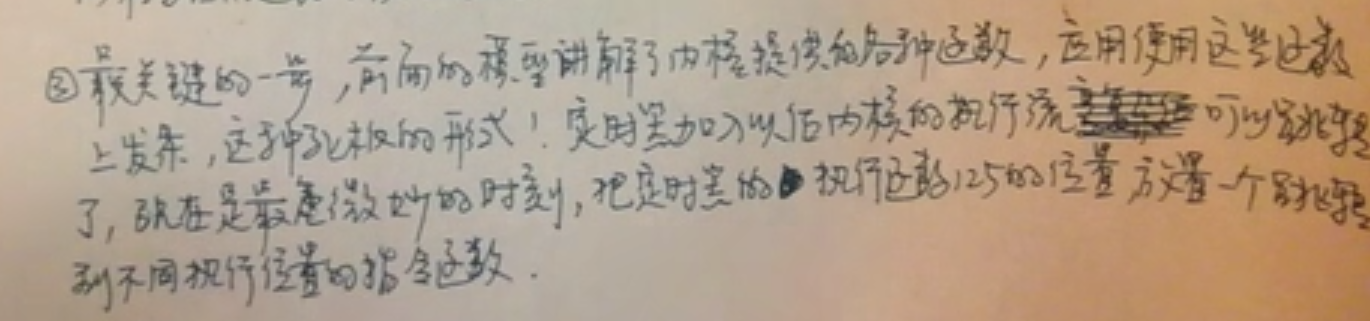 ③最关键的一步,前面的模型讲解了内核提供的各种函数,应用使用这些函数
上发条,这种死板的形式!定时器加入以后内核的执行流 可以跳转
了,现在是最微妙的时刻,把定时器的 执行函数125的位置,放置一个跳转
到不同执行位置的指令函数.